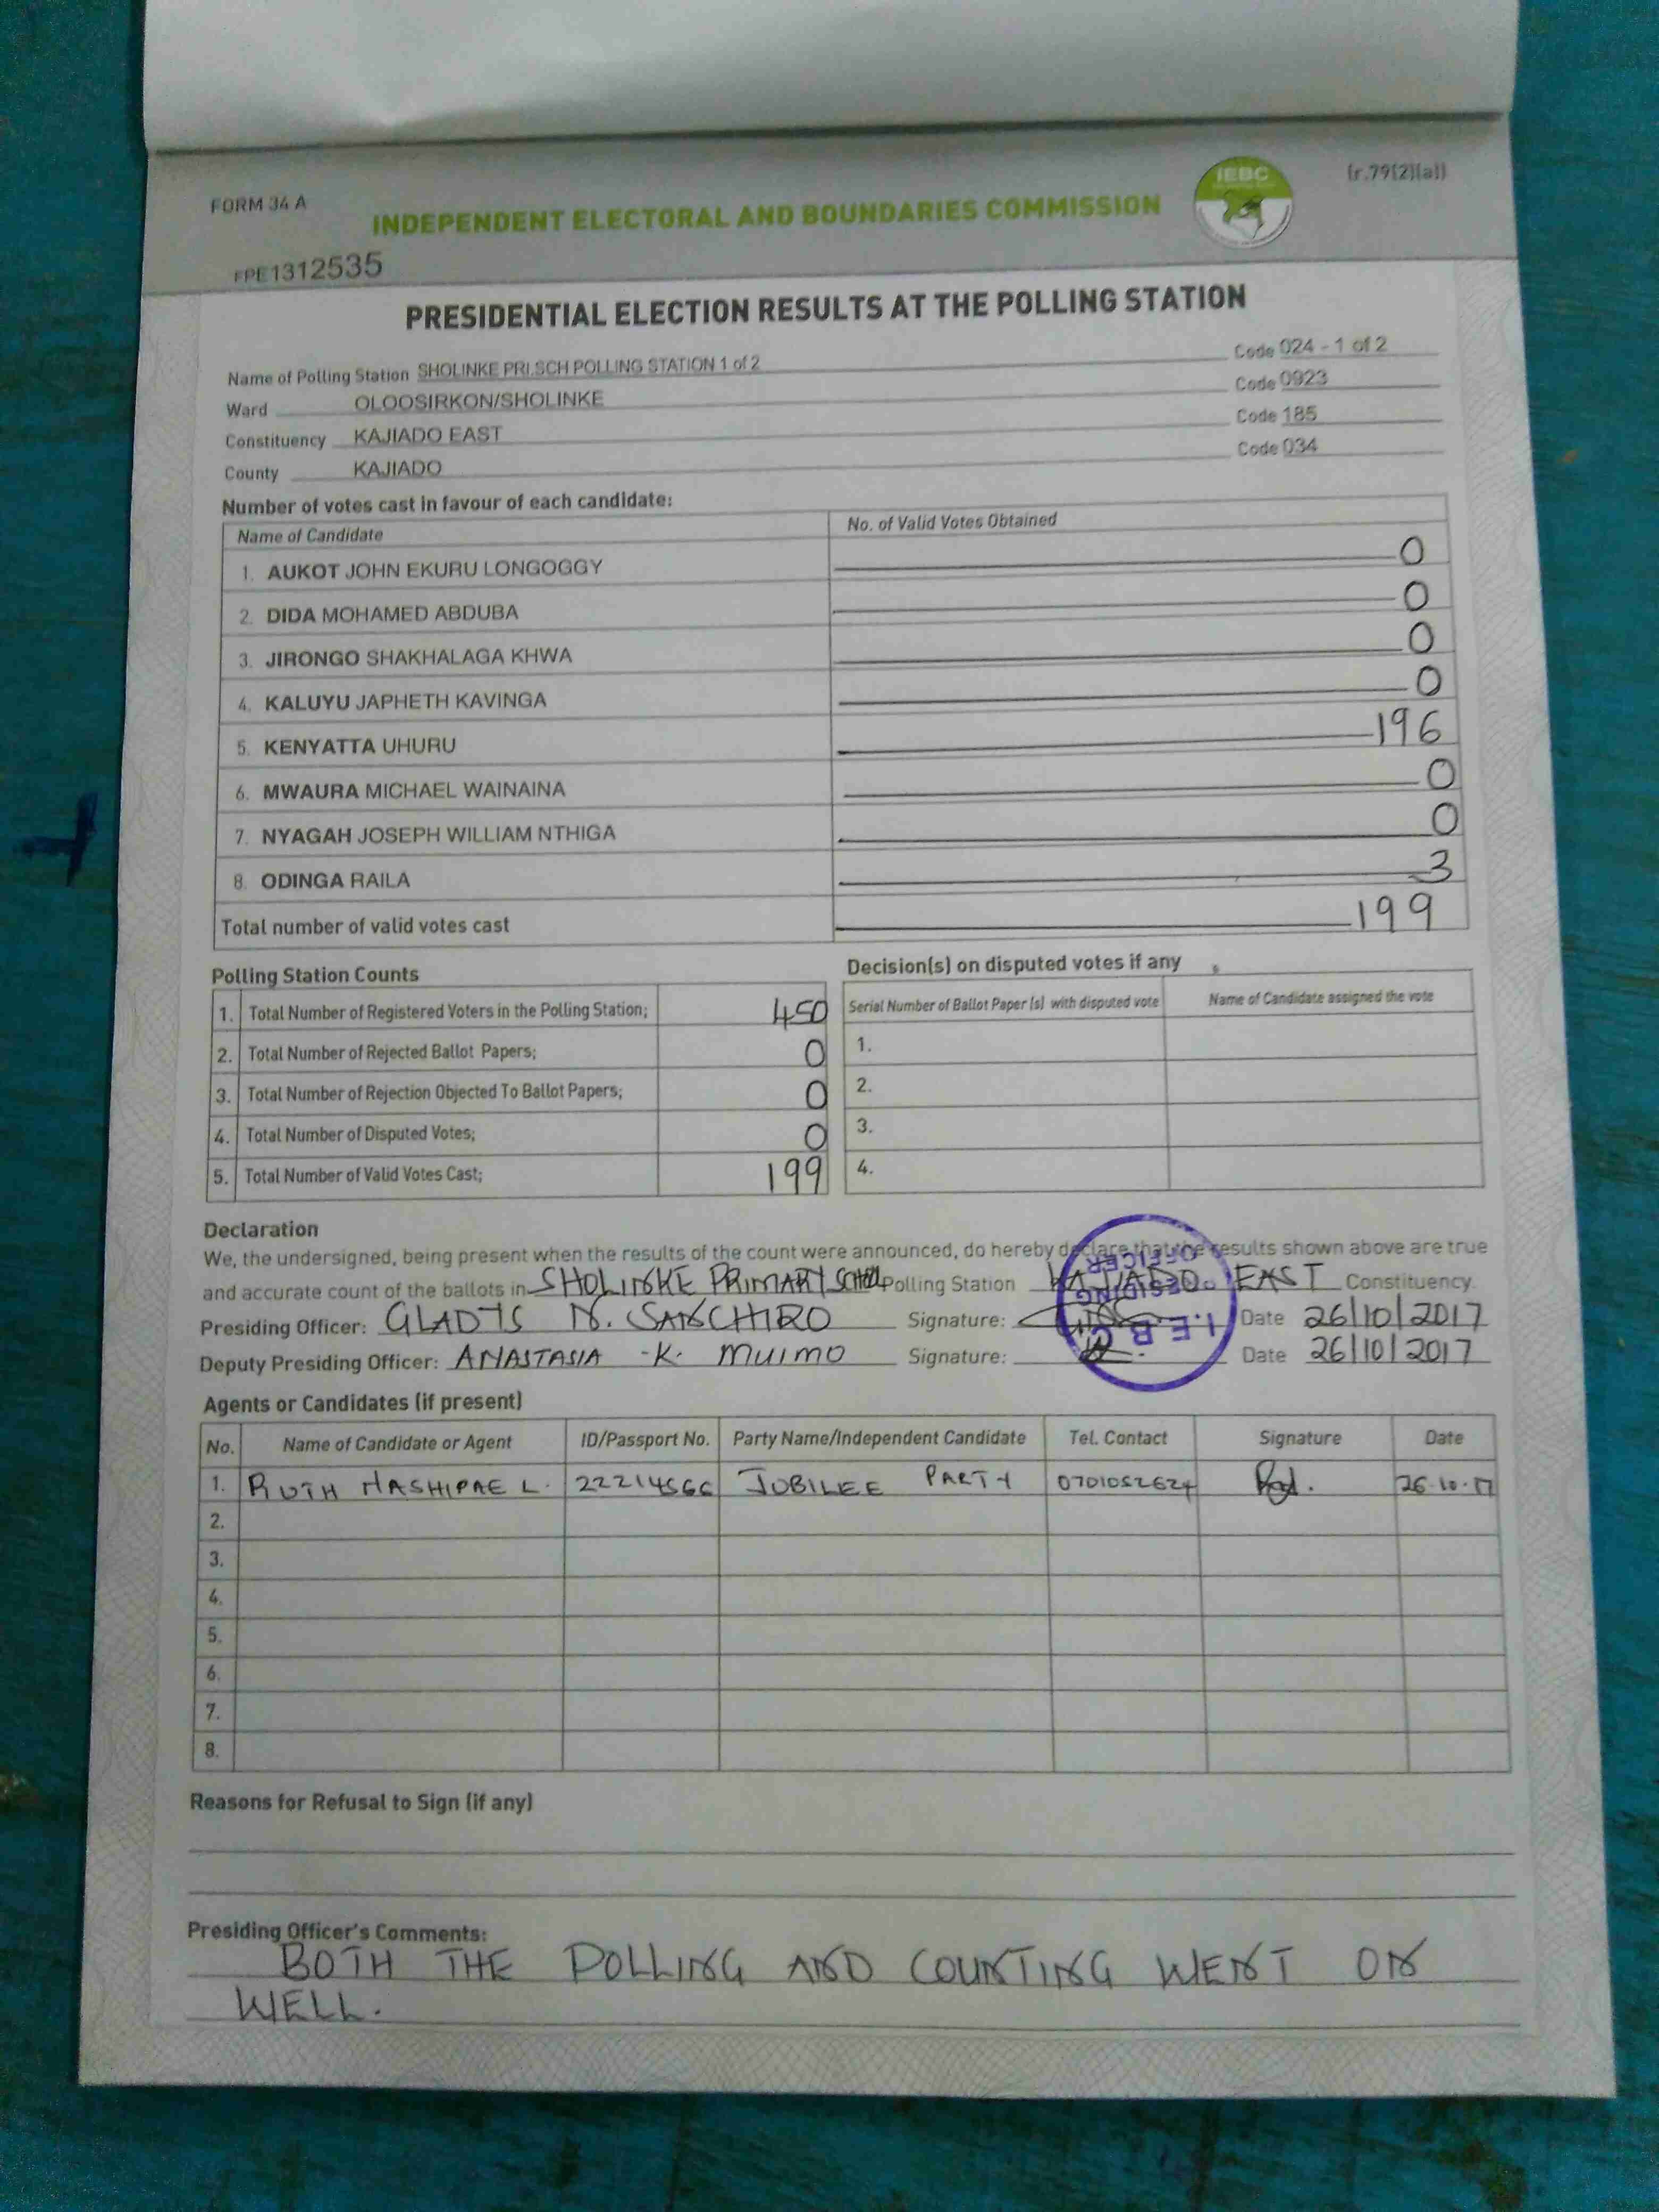 FORM 34 A
INDEPENDENT ELECTORAL AND BOUNDARIES COMMISSION
IEBC
(r.79(2)(a))
FPE1312535
PRESIDENTIAL ELECTION RESULTS AT THE POLLING STATION
Name of Polling Station SHOLINKE PRI.SCH POLLING STATION 1 of 2 Code 024 - 1 of 2
Ward OLOOSIRKON/SHOLINKE Code 0923
Constituency KAJIADO EAST Code 185
County KAJIADO Code 034
Number of votes cast in favour of each candidate:
Name of Candidate No. of Valid Votes Obtained
1. AUKOT JOHN EKURU LONGOGGY 0
2. DIDA MOHAMED ABDUBA 0
3. JIRONGO SHAKHALAGA KHWA 0
4. KALUYU JAPHETH KAVINGA 0
5. KENYATTA UHURU 196
6. MWAURA MICHAEL WAINAINA 0
7. NYAGAH JOSEPH WILLIAM NTHIGA 0
8. ODINGA RAILA 3
Total number of valid votes cast 199
Polling Station Counts
1. Total Number of Registered Voters in the Polling Station; 450
2. Total Number of Rejected Ballot Papers; 0
3. Total Number of Rejection Objected To Ballot Papers; 0
4. Total Number of Disputed Votes; 0
5. Total Number of Valid Votes Cast; 199
Decision(s) on disputed votes if any
Serial Number of Ballot Paper (s) with disputed vote Name of Candidate assigned the vote
1.
2.
3.
4.
Declaration
We, the undersigned, being present when the results of the count were announced, do hereby declare that the results shown above are true
and accurate count of the ballots in SHOLINKE PRIMARY SCHOOL Polling Station KAJIADO EAST Constituency.
Presiding Officer: GLADYS N. SANCHIRO Signature: Date 26/10/2017
Deputy Presiding Officer: ANASTASIA K. MUIMO Signature: Date 26/10/2017
I.E.B.C
PRESIDING
OFFICER
Agents or Candidates (if present)
No. Name of Candidate or Agent ID/Passport No. Party Name/Independent Candidate Tel. Contact Signature Date
1. RUTH MASHIPAE L. 22214566 JUBILEE PARTY 0701052624 26.10.17
2.
3.
4.
5.
6.
7.
8.
Reasons for Refusal to Sign (if any)
Presiding Officer's Comments:
BOTH THE POLLING AND COUNTING WENT ON
WELL.